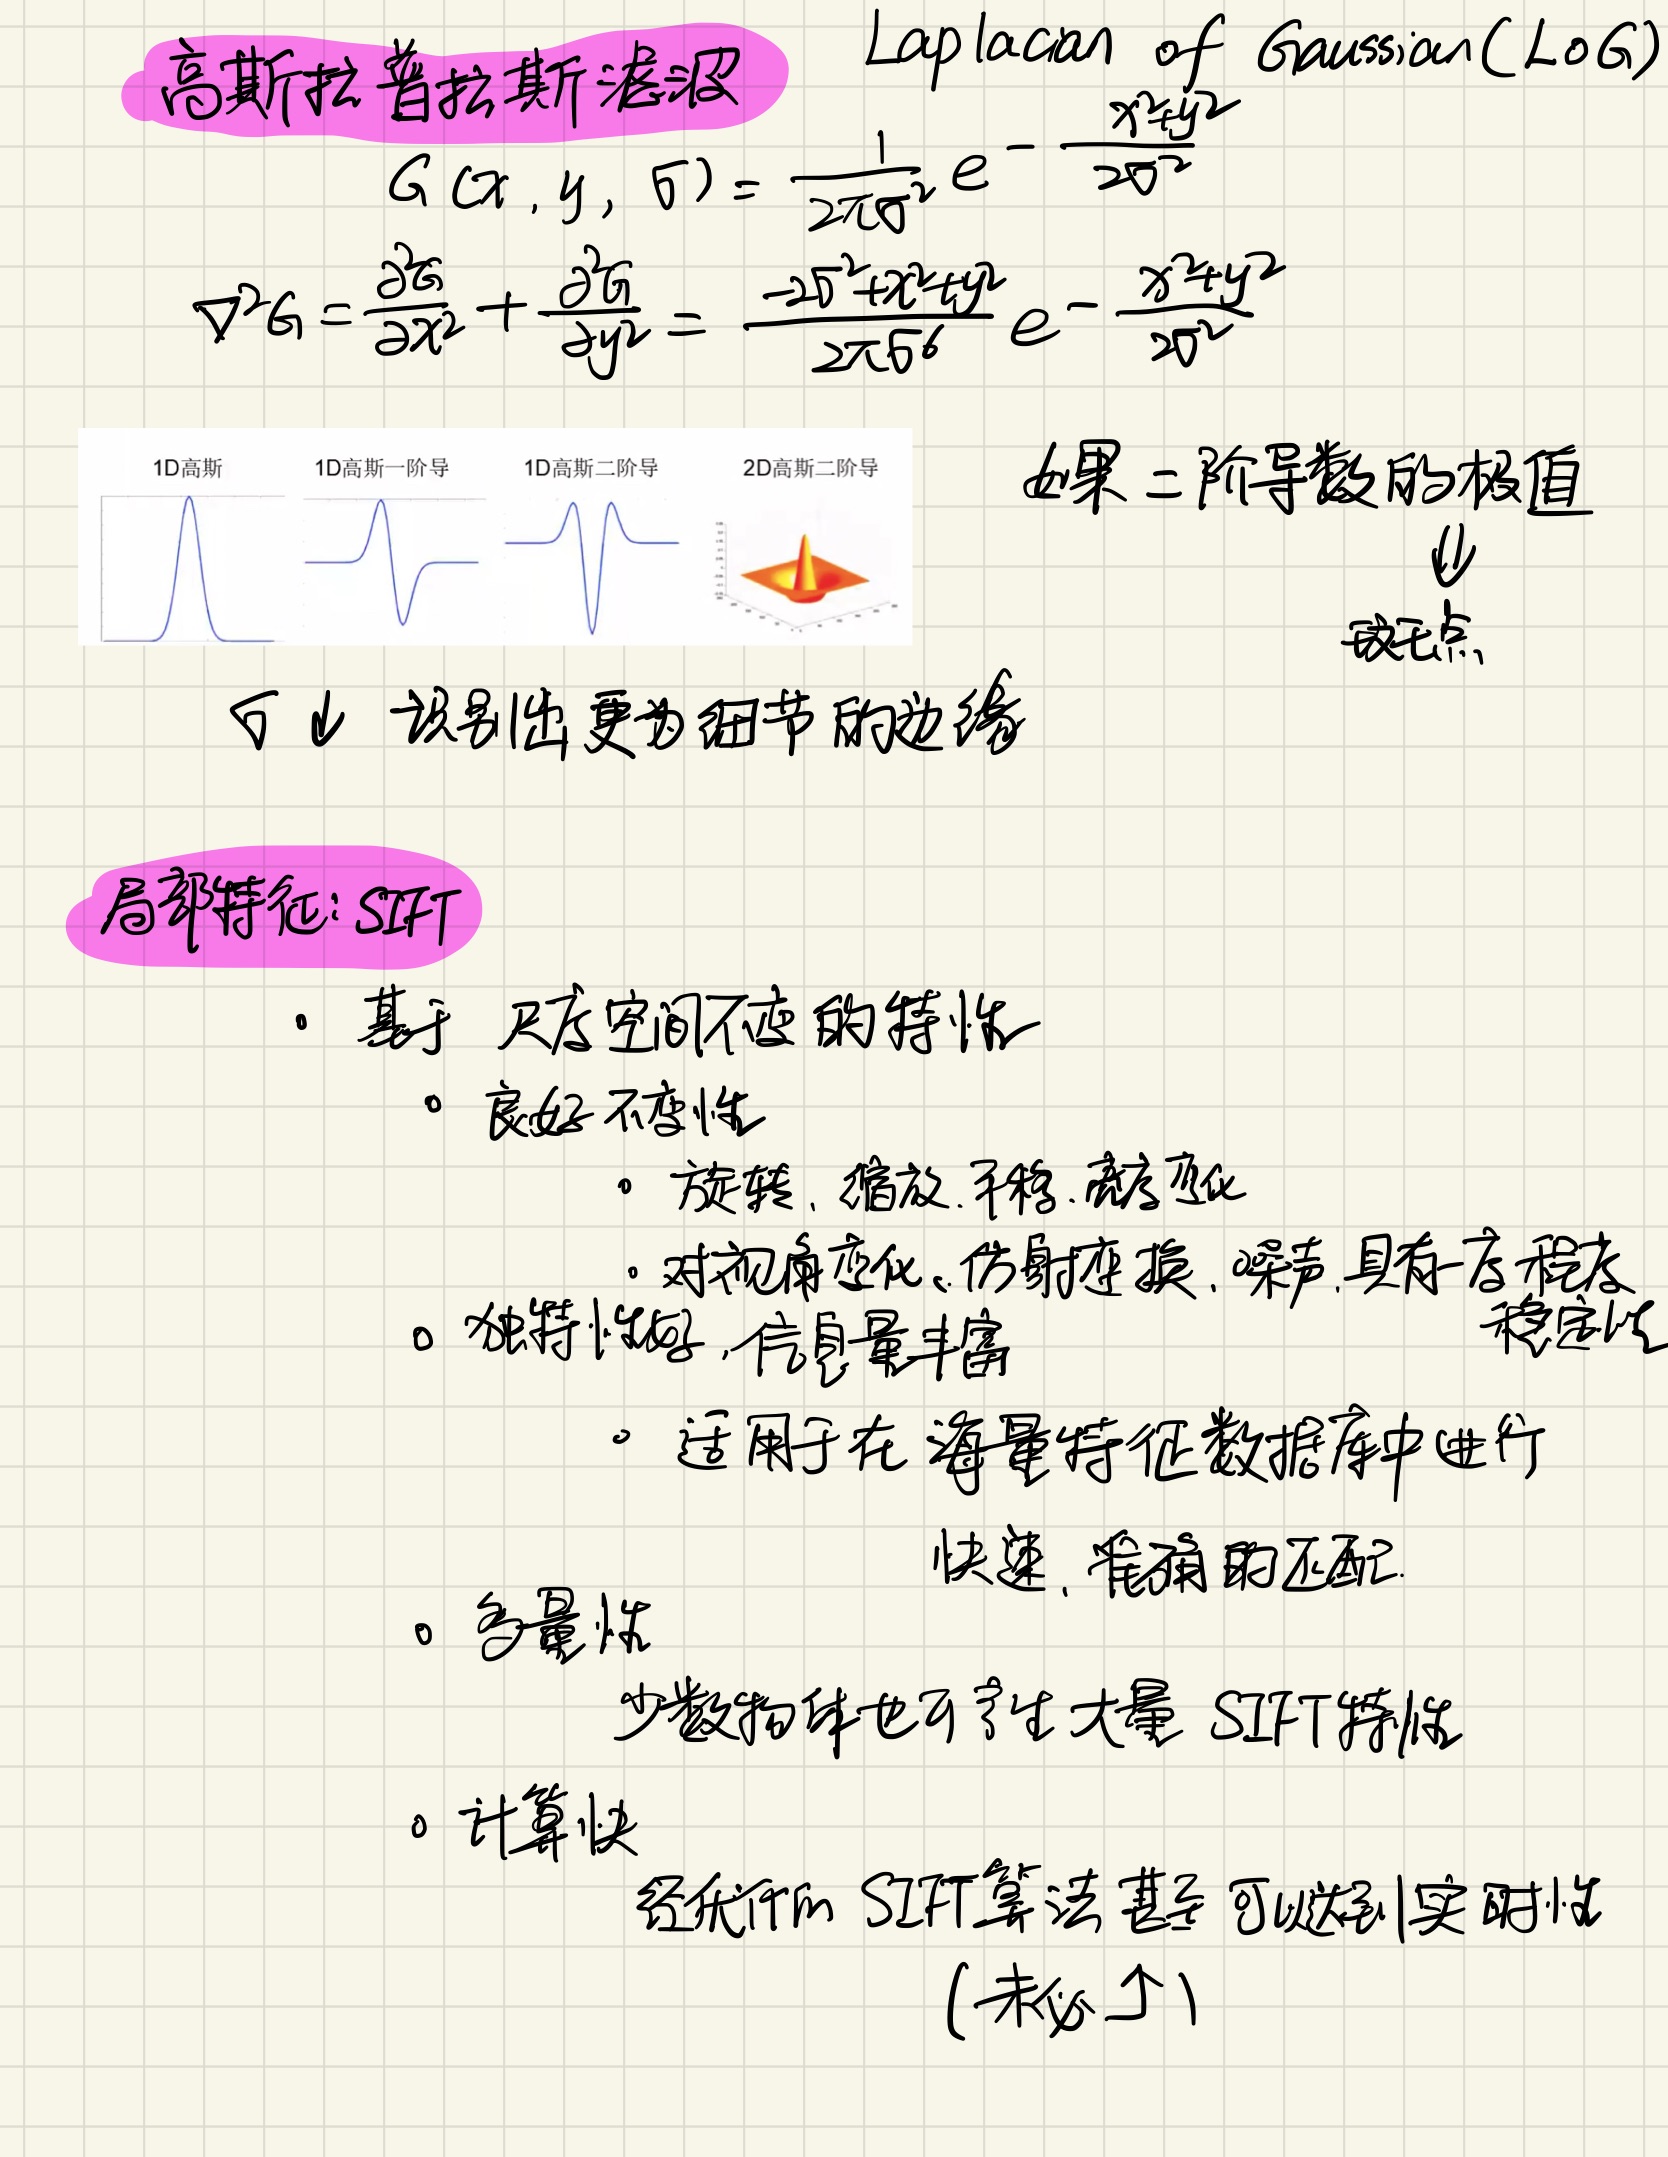 高斯拉普拉斯滤波
Laplacian of Gaussian (LoG)
G(x, y, σ) = \frac{1}{2πσ^2} e^{-\frac{x^2+y^2}{2σ^2}}
∇^2G = \frac{∂^2G}{∂x^2} + \frac{∂^2G}{∂y^2} = \frac{-2σ^2+x^2+y^2}{2πσ^6} e^{-\frac{x^2+y^2}{2σ^2}}
1D高斯 1D高斯一阶导 1D高斯二阶导 2D高斯二阶导
如果二阶导数的极值
⇓
斑点
σ ↓ 识别出更为细节的边缘
局部特征: SIFT
· 基于 尺度空间不变的特性
· 良好不变性
· 旋转、缩放、平移、亮度变化
· 对视角变化、仿射变换、噪声、具有一定程度
稳定性
· 独特性好,信息量丰富
· 适用于在海量特征数据库中进行
快速、准确的匹配.
· 多量性
少数物体也可产生大量 SIFT特性
· 计算快
经优化的 SIFT算法甚至可以达到实时性
(未必 ↑)